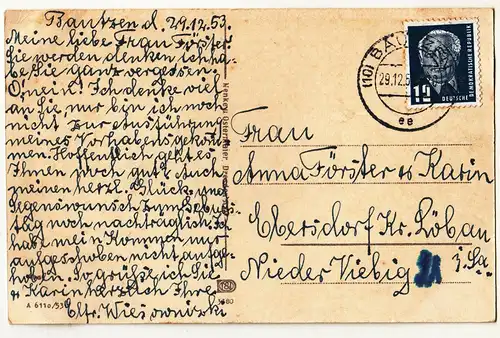 Bautzen d. 29.12.53
Meine liebe Frau Förster
Sie werden denken ich ha-
be Sie ganz vergessen.
O, nein! Ich denke viel
an Sie, nur bin ich noch
nicht zur Ausführung
meines Vorhabens gekom-
men. Hoffentlich geht es
Ihnen noch gut. Auch
meinen herzl. Glück- und
Segenswunsch zum Gebur-
tstag noch nachträglich. Ich
habe mein Kommen nur
aufgeschoben nicht aufge-
hoben. So grüße ich Sie
u. Karin herzlich Ihre
Elfr.
A 6110/53
(10) BAU
29.12.5
ee
12
DEUTSCHE
DEMOKRATISCHE REPUBLIK
Frau
Anna Förster u Karin
Ebersdorf Kr. Löbau
Nieder Viebig 21 i. Sa.